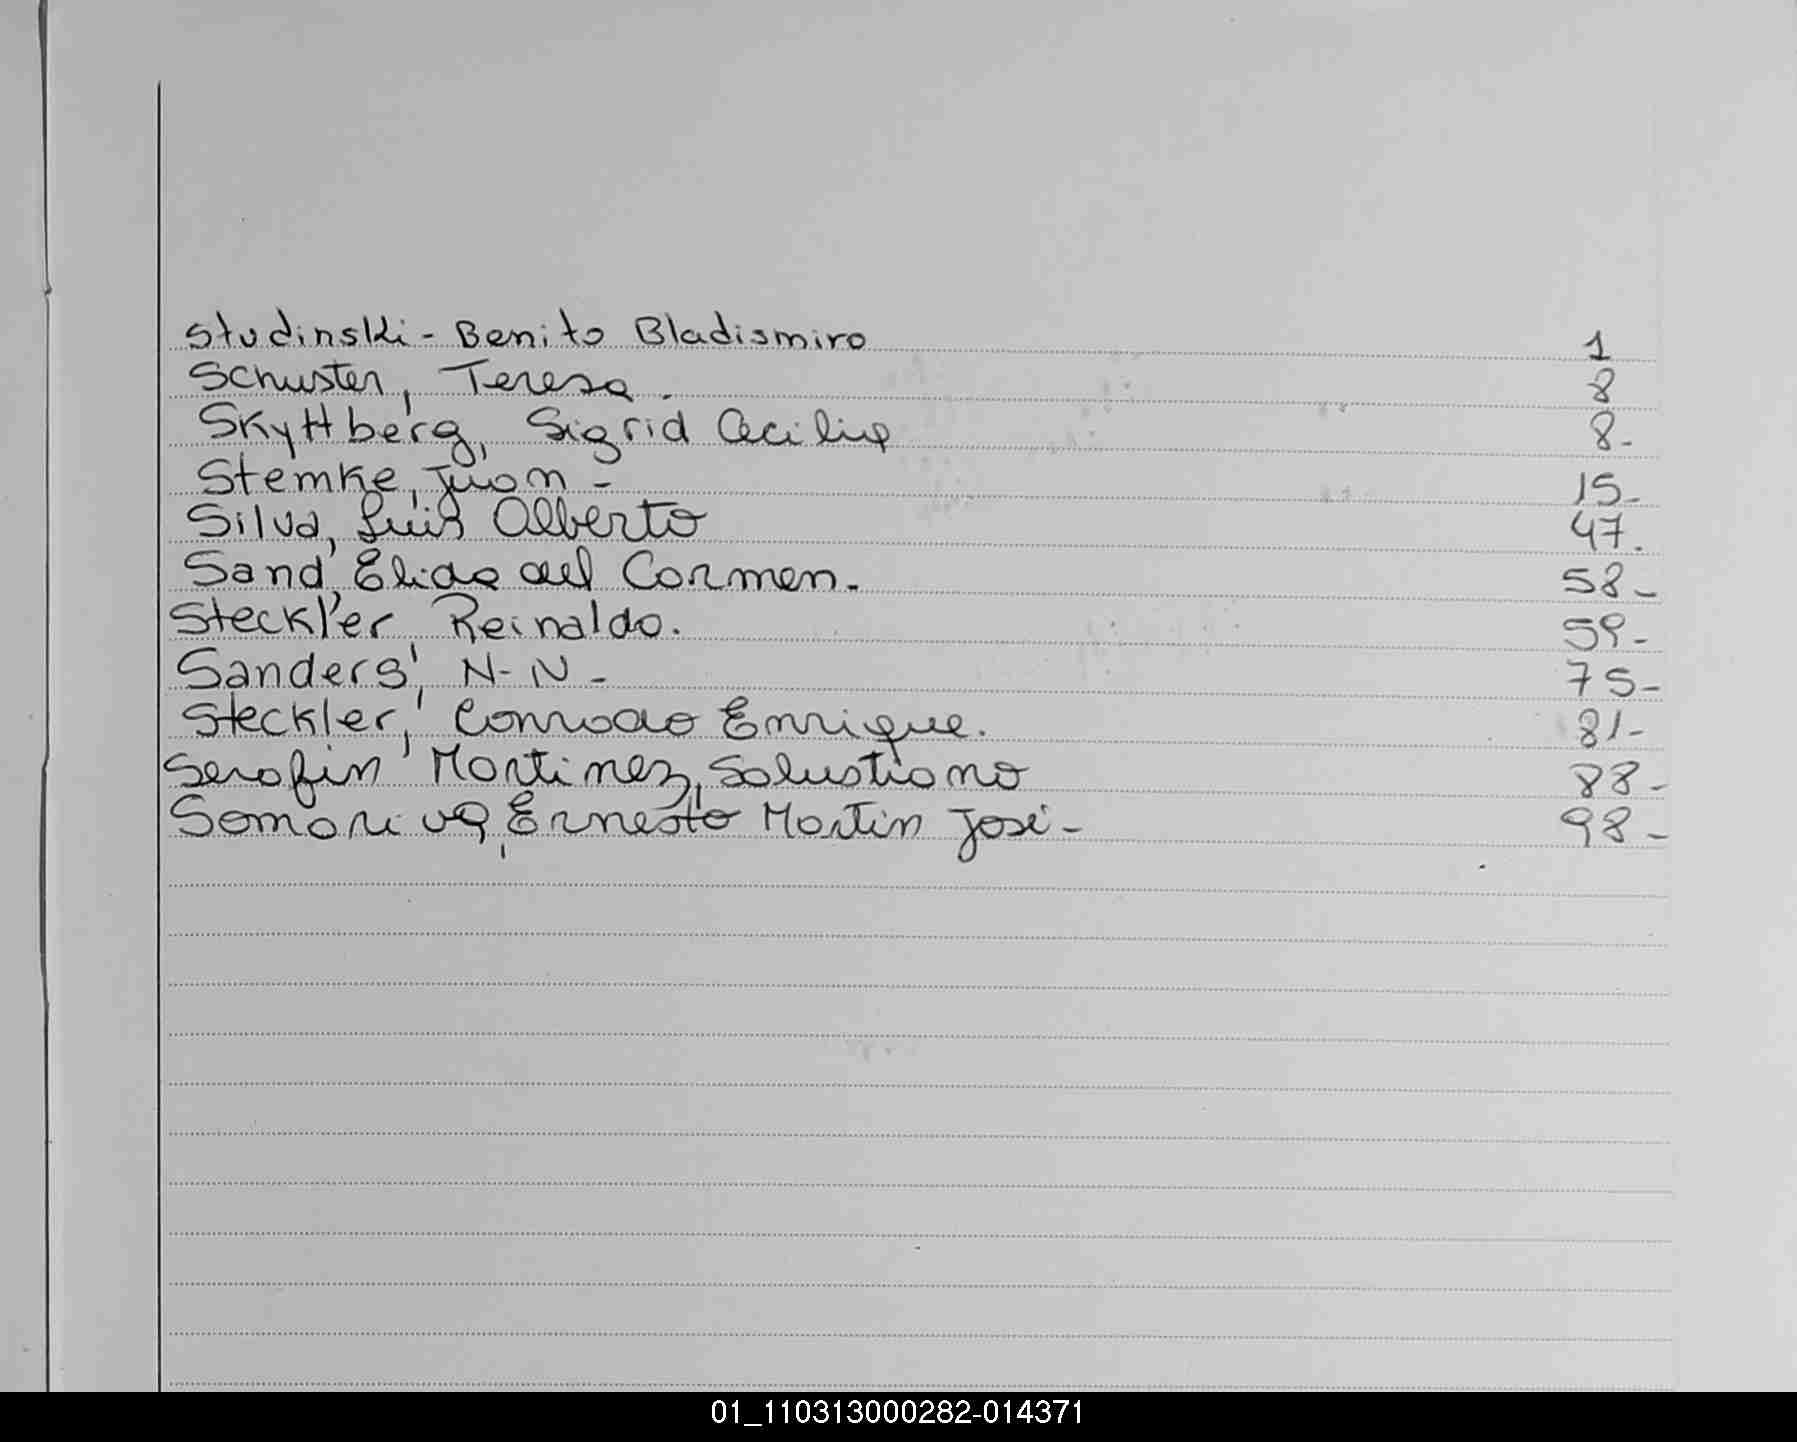 Studinski - Benito Bladismiro 1
Schuster, Teresa. 8
Skyttberg, Sigrid Cecilia 8-
Stemke, Juan - 15-
Silva, Luis Alberto 47.
Sand, Elida del Carmen. 58-
Steckler, Reinaldo. 59-
Sanders, N-N- 75-
Steckler, Conrado Enrique. 81-
Serafin Martinez, Salustiano 88-
Somariva, Ernesto Martin José - 98-
01_110313000282-014371